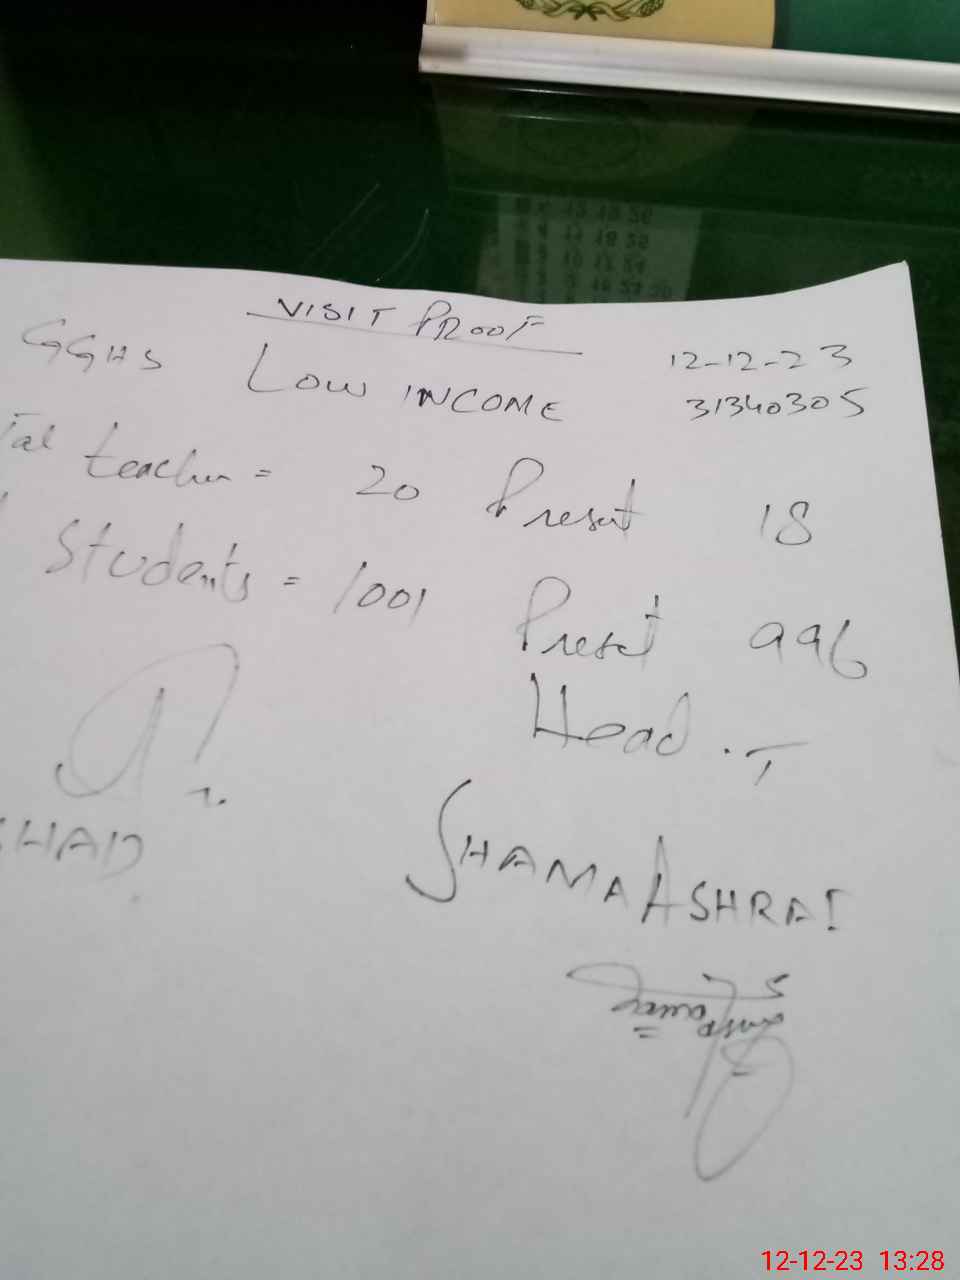 VISIT PROOF
12-12-23
GGHS LOW INCOME 31340305
Tal teacher = 20 Present 18
Students = 1001 Present 996
Head .T
SHAD
SHAMA ASHRAF
12-12-23 13:28